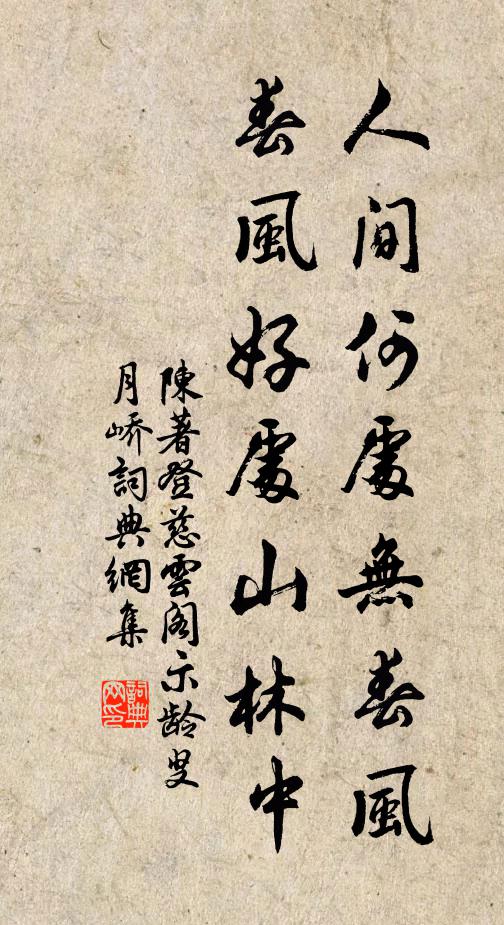 人間何處無春風
春風好處山林中
陳著登慈雲閣示齡叟
月嶠詞典網集
詞典網印